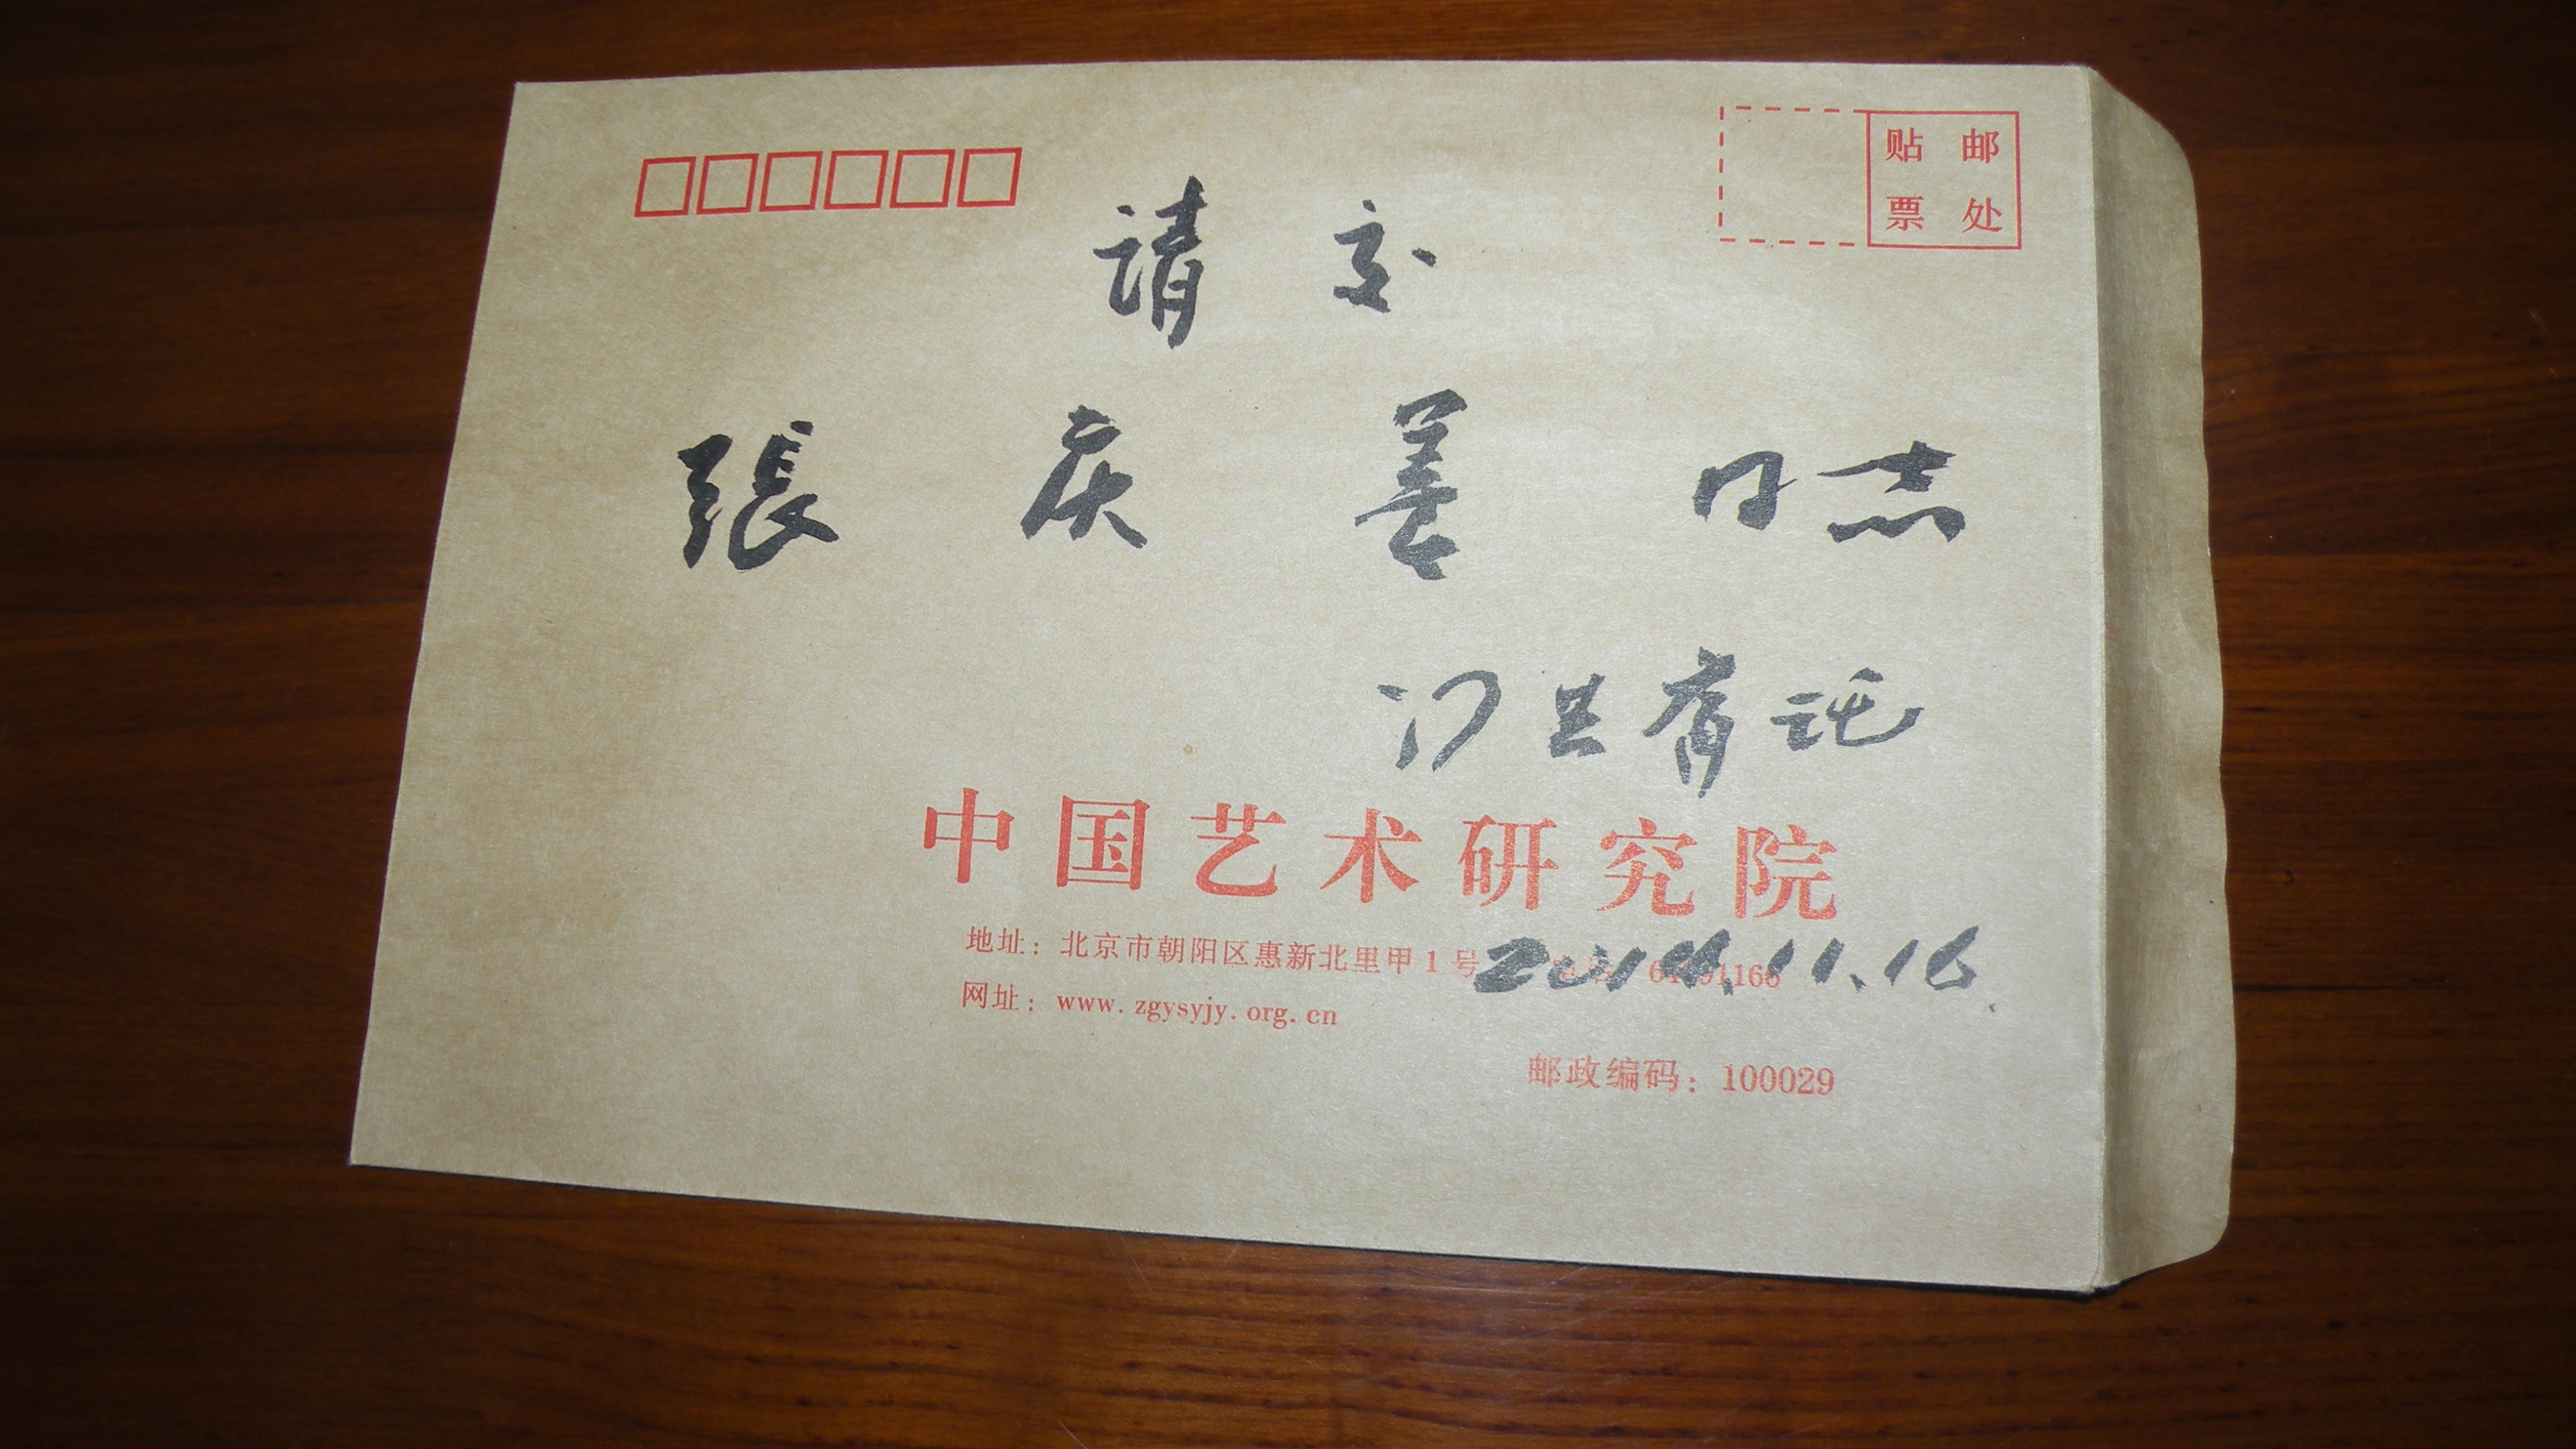 贴 邮
票 处
请 交
張 庆 善 同志
托
中国艺术研究院
地址：北京市朝阳区惠新北里甲1号
2014.11.16.
网址：www.zgysyjy.org.cn
邮政编码：100029